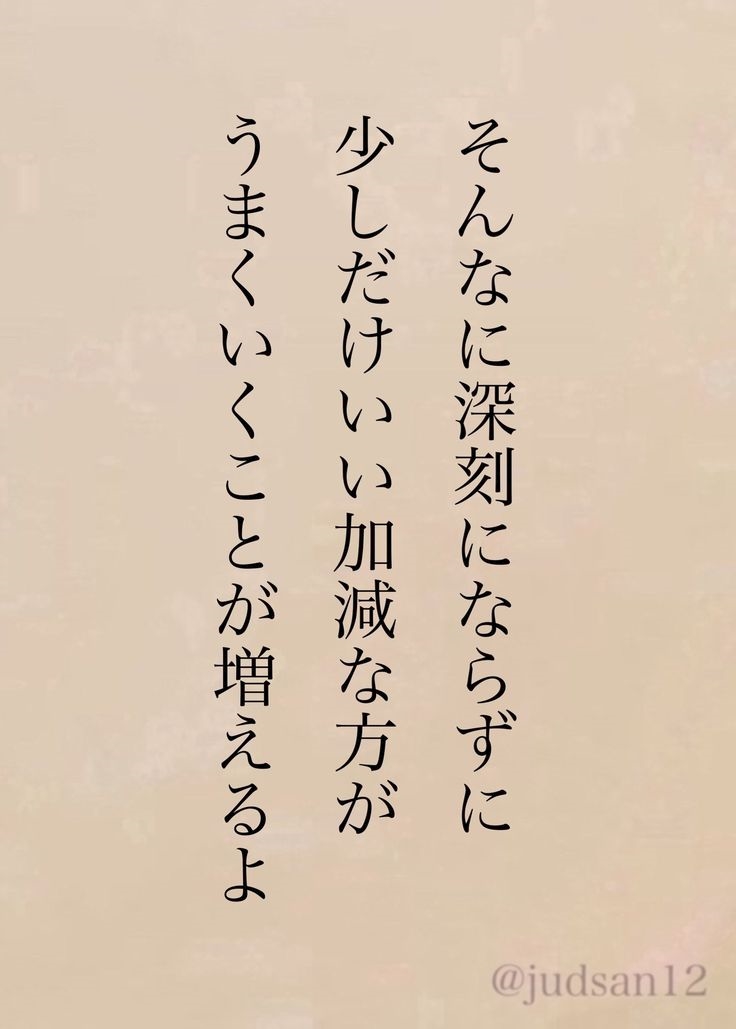 そんなに深刻にならずに
少しだけいい加減な方が
うまくいくことが増えるよ
@judsan12